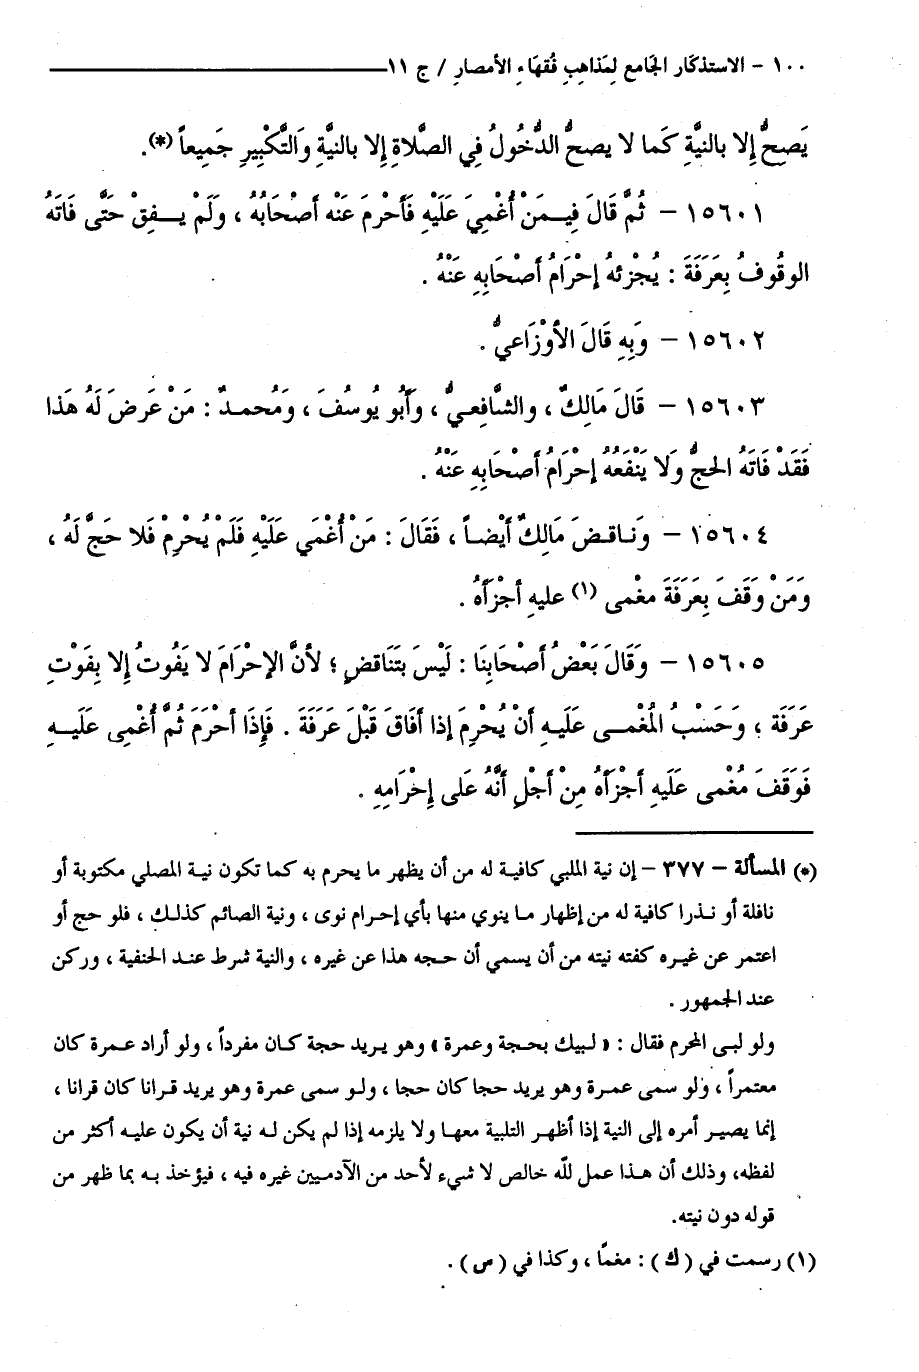 ١٠٠ - الاستذكار الجامع لِمَذاهِبِ فُقهَاءِ الأمصارِ / ج ١١
يَصِحُّ إِلا بالنيَّةِ كَما لا يصحُّ الدُّخُولُ فِي الصَّلاةِ إِلا بالنيَّةِ وَالتَّكْبِيرِ جَمِيعاً (*).
١٥٦٠١ - ثُمَّ قَالَ فِيمَنْ أُغْمِيَ عَلَيْهِ فَأَحْرَمَ عَنْه أصْحَابُهُ ، وَلَمْ يفِقْ حَتَّى فَاتَهُ
الوقُوفُ بِعَرَفَةَ : يُجْزئهُ إِحْرَامُ أصْحَابِهِ عَنْهُ .
١٥٦٠٢ - وَبِهِ قَالَ الأوْزَاعيُّ .
١٥٦٠٣ - قَالَ مَالِكٌ ، والشَّافِعيُّ ، وَأبُو يُوسُفَ ، وَمُحمدٌ : مَنْ عَرضَ لَهُ هَذا
فَقَدْ فَاتَهُ الحجُّ وَلا يَنْفَعُهُ إحْرَامُ أصْحَابِهِ عَنْهُ .
١٥٦٠٤ - وَناقضَ مَالِكٌ أيْضاً ، فَقَالَ : مَنْ أُغْمَي عَلَيْهِ فَلَمْ يُحْرِمْ فَلا حَجَّ لَهُ ،
وَمَنْ وَقَفَ بِعَرَفَةَ مغْمى (١) عليهِ أجْزَأهُ .
١٥٦٠٥ - وَقَالَ بَعْضُ أصْحَابِنَا : لَيْسَ بِتَنَاقضٍ ؛ لأنَّ الإحْرَامَ لا يَفُوتُ إلا بِفَوْتِ
عَرَفَة ، وَحَسْبُ المُغْمى عَلَيهِ أنْ يُحْرِمَ إذا أفَاقَ قَبْلَ عَرَفَةَ . فَإِذَا أحْرَمَ ثُمَّ أُغْمِى عَلَيهِ
فَوَقَفَ مُغْمى عَلَيهِ أجْزَأهُ مِنْ أجْلِ أنَّهُ عَلَى إِحْرَامِهِ .
(*) المسألة - ٣٧٧ - إن نية الملبي كافية له من أن يظهر ما يحرم به كما تكون نية المصلي مكتوبة أو
نافلة أو نذرا كافية له من إظهار ما ينوي منها بأي إحرام نوى ، ونية الصائم كذلك ، فلو حج أو
اعتمر عن غيره كفته نيته من أن يسمي أن حجه هذا عن غيره ، والنية شرط عند الحنفية ، وركن
عند الجمهور .
ولو لبى المحرم فقال : « لبيك بحجة وعمرة » وهو يريد حجة كان مفرداً ، ولو أراد عمرة كان
معتمراً ، ولو سمى عمرة وهو يريد حجا كان حجا ، ولو سمى عمرة وهو يريد قرانا كان قرانا ،
إنما يصير أمره إلى النية إذا أظهر التلبية معها ولا يلزمه إذا لم يكن له نية أن يكون عليه أكثر من
لفظه، وذلك أن هذا عمل لله خالص لا شيء لأحد من الآدميين غيره فيه ، فيؤخذ به بما ظهر من
قوله دون نيته.
(١) رسمت في ( ك ) : مغمًا ، وكذا في ( ص ) .